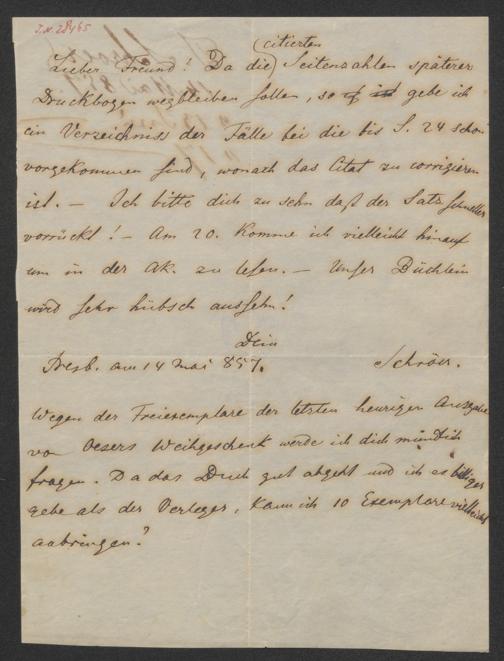 I.N. 28465
citierten
Lieber Freund! Da die Seitenzahlen späterer
Druckbogen wegbleiben sollen, so gebe ich
ein Verzeichniss der Fälle bei die bis S. 24 schon
vorgekommen sind, wonach das Citat zu corrigieren
ist. – Ich bitte dich zu sehn daß der Satz schneller
vorrückt! – Am 20. komme ich vielleicht hinauf
um in der Ak. zu lesen. – Unser Büchlein
wird sehr hübsch aussehn!
Dein
Presb. am 14 Mai 857. Schröer.
Wegen der Freiexemplare der letzten heurigen Ausgabe
von Oesers Weihgeschenk werde ich dich mündlich
fragen. Da das Buch gut abgeht und ich es billiger
gebe als der Verleger, kann ich 10 Exemplare vielleicht
anbringen?